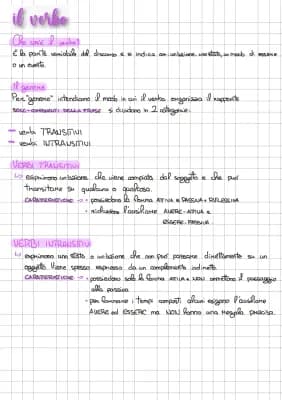 il verbo
Che cos'è il verbo?
È la parte variabile del discorso e indica un'azione, uno stato, un modo di essere
o un evento.
Il genere
Per "genere" intendiamo il modo in cui il verbo organizza il rapporto
DELLA FRASE si dividono in 2 categorie:
- verbi TRANSITIVI
- verbi INTRANSITIVI
VERBI TRANSITIVI
↳ esprimono un'azione che viene compiuta dal soggetto e che può
transitare su qualcuno o qualcosa.
CARATTERISTICHE → • possiedono la forma ATTIVA e PASSIVA + RIFLESSIVA
• richiedono l'ausiliare AVERE-ATTIVA e
ESSERE-PASSIVA
VERBI INTRANSITIVI
↳ esprimono uno stato o un'azione che non può passare direttamente su un
oggetto. Viene spesso espresso da un complemento indiretto.
CARATTERISTICHE → • possiedono solo la forma ATTIVA e NON ammettono il passaggio
alla passiva
• per formare i tempi composti alcuni esigono l'ausiliare
AVERE ed ESSERE ma NON hanno una regola precisa.